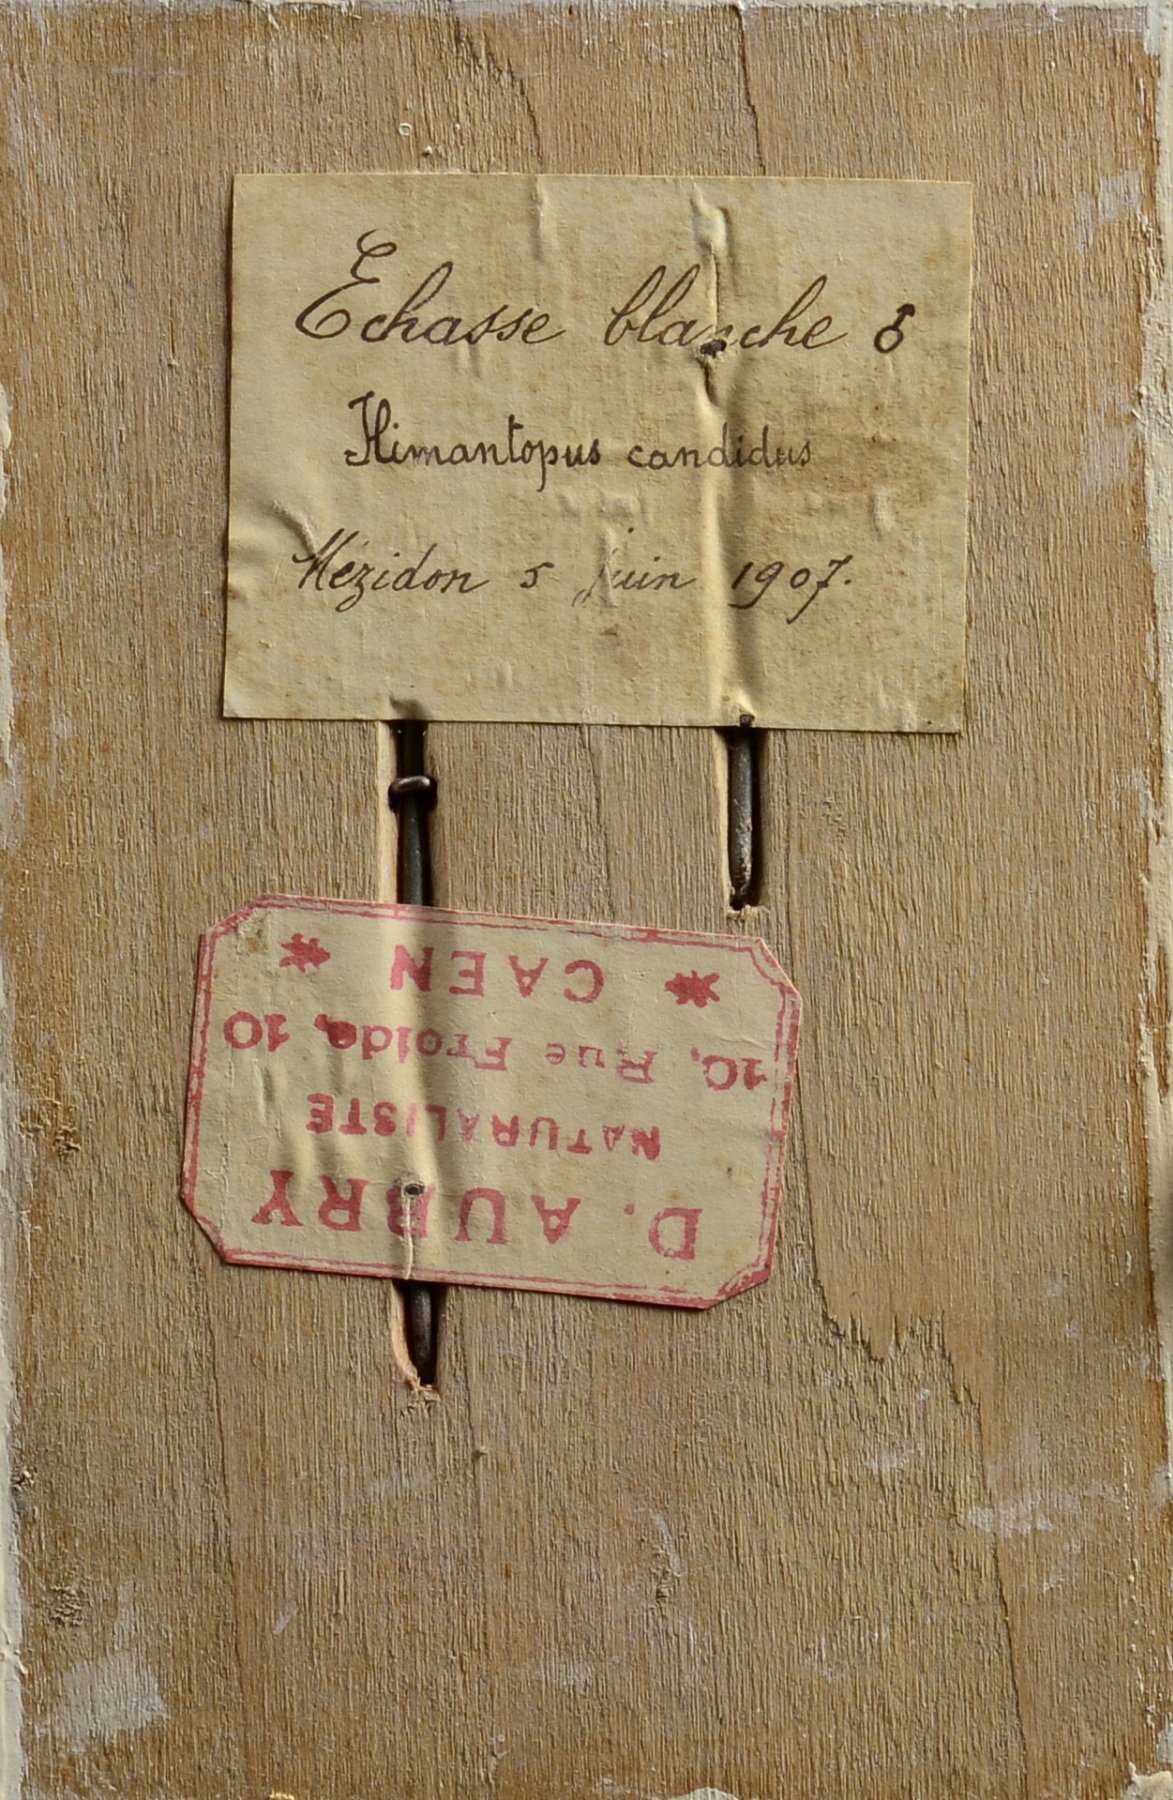 Echasse blanche ♂
Himantopus candidus
Mézidon 5 juin 1907.
D. AUBRY
NATURALISTE
10, Rue Froide, 10
* CAEN *